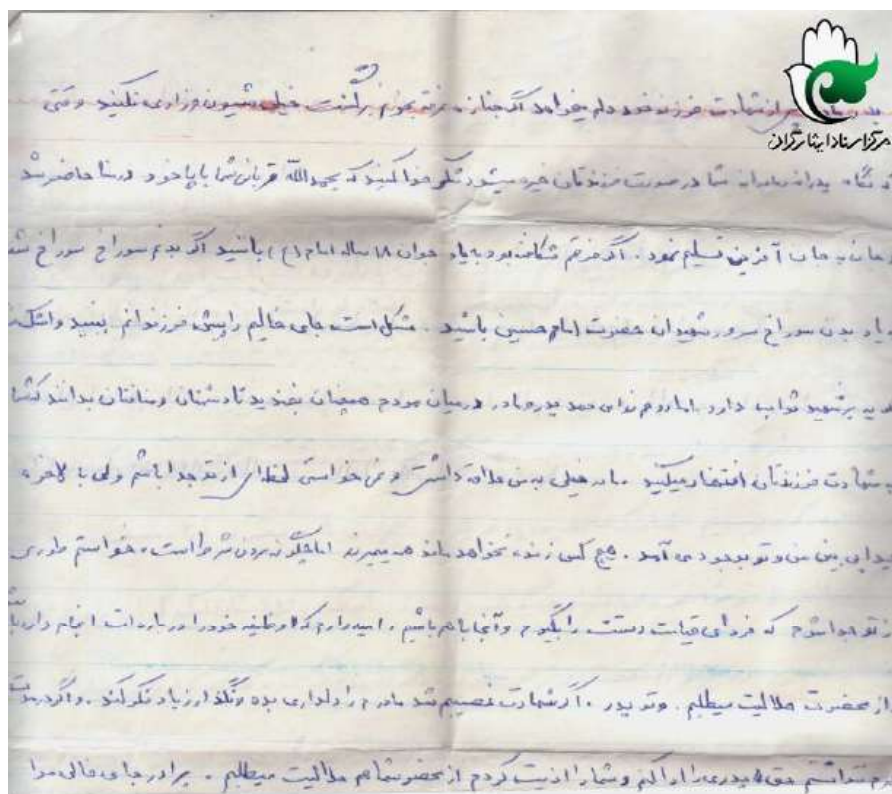 مرکز اسناد ایثارگران
از شهادت فرزند خود دلم میخواهد اگر جنازه غرقه بخونم برگشت خیلی شیون و زاری نکنید وقتی
نگاه پدرانه مادرانه شما در صورت فرزندتان خیره میشود شکر خدا کنید که بحمدالله قربانی شما با پا خود در منا حاضر شد
جان به جان آفرین تسلیم نمود. اگر فرقم شکافته بود به یاد جوان ۱۸ ساله امام (ع) باشید اگر بدنم سوراخ سوراخ
یاد بدن سوراخ سرور شهیدان حضرت امام حسین باشید. مشکل است جای خالیم را پیش فرزندانم ببینید و اشک
بر شهید ثواب دارد اما پدر و مادر در میان مردم همچنان بخندید تا دشمنان و منافقان بدانند که شما
شهادت فرزندتان افتخار میکنید. مادر خیلی به من علاقه داشتی و نمی خواستی لحظه ای از تو جدا باشم ولی بالاخره
جدایی بین من و تو بوجود می آمد. هیچ کس زنده نخواهد ماند همه میمیرند اما چگونه مردن شرط است، خواستم طوری
از تو جدا شوم که فردای قیامت دستت را بگیرم و آنجا با هم باشیم. امیدوارم که وظیفه خود را در باره ات انجام داده
از حضرت حلالیت میطلبم. و تو پدر. اگر شهادت نصیبم شد مادرم را دلداری بده و نگذار زیاد فکر کند. و اگر
نتوانستم حق پدری را ادا کنم و شما را اذیت کردم از محضر شما هم حلالیت میطلبم. برادر جای خالی مرا